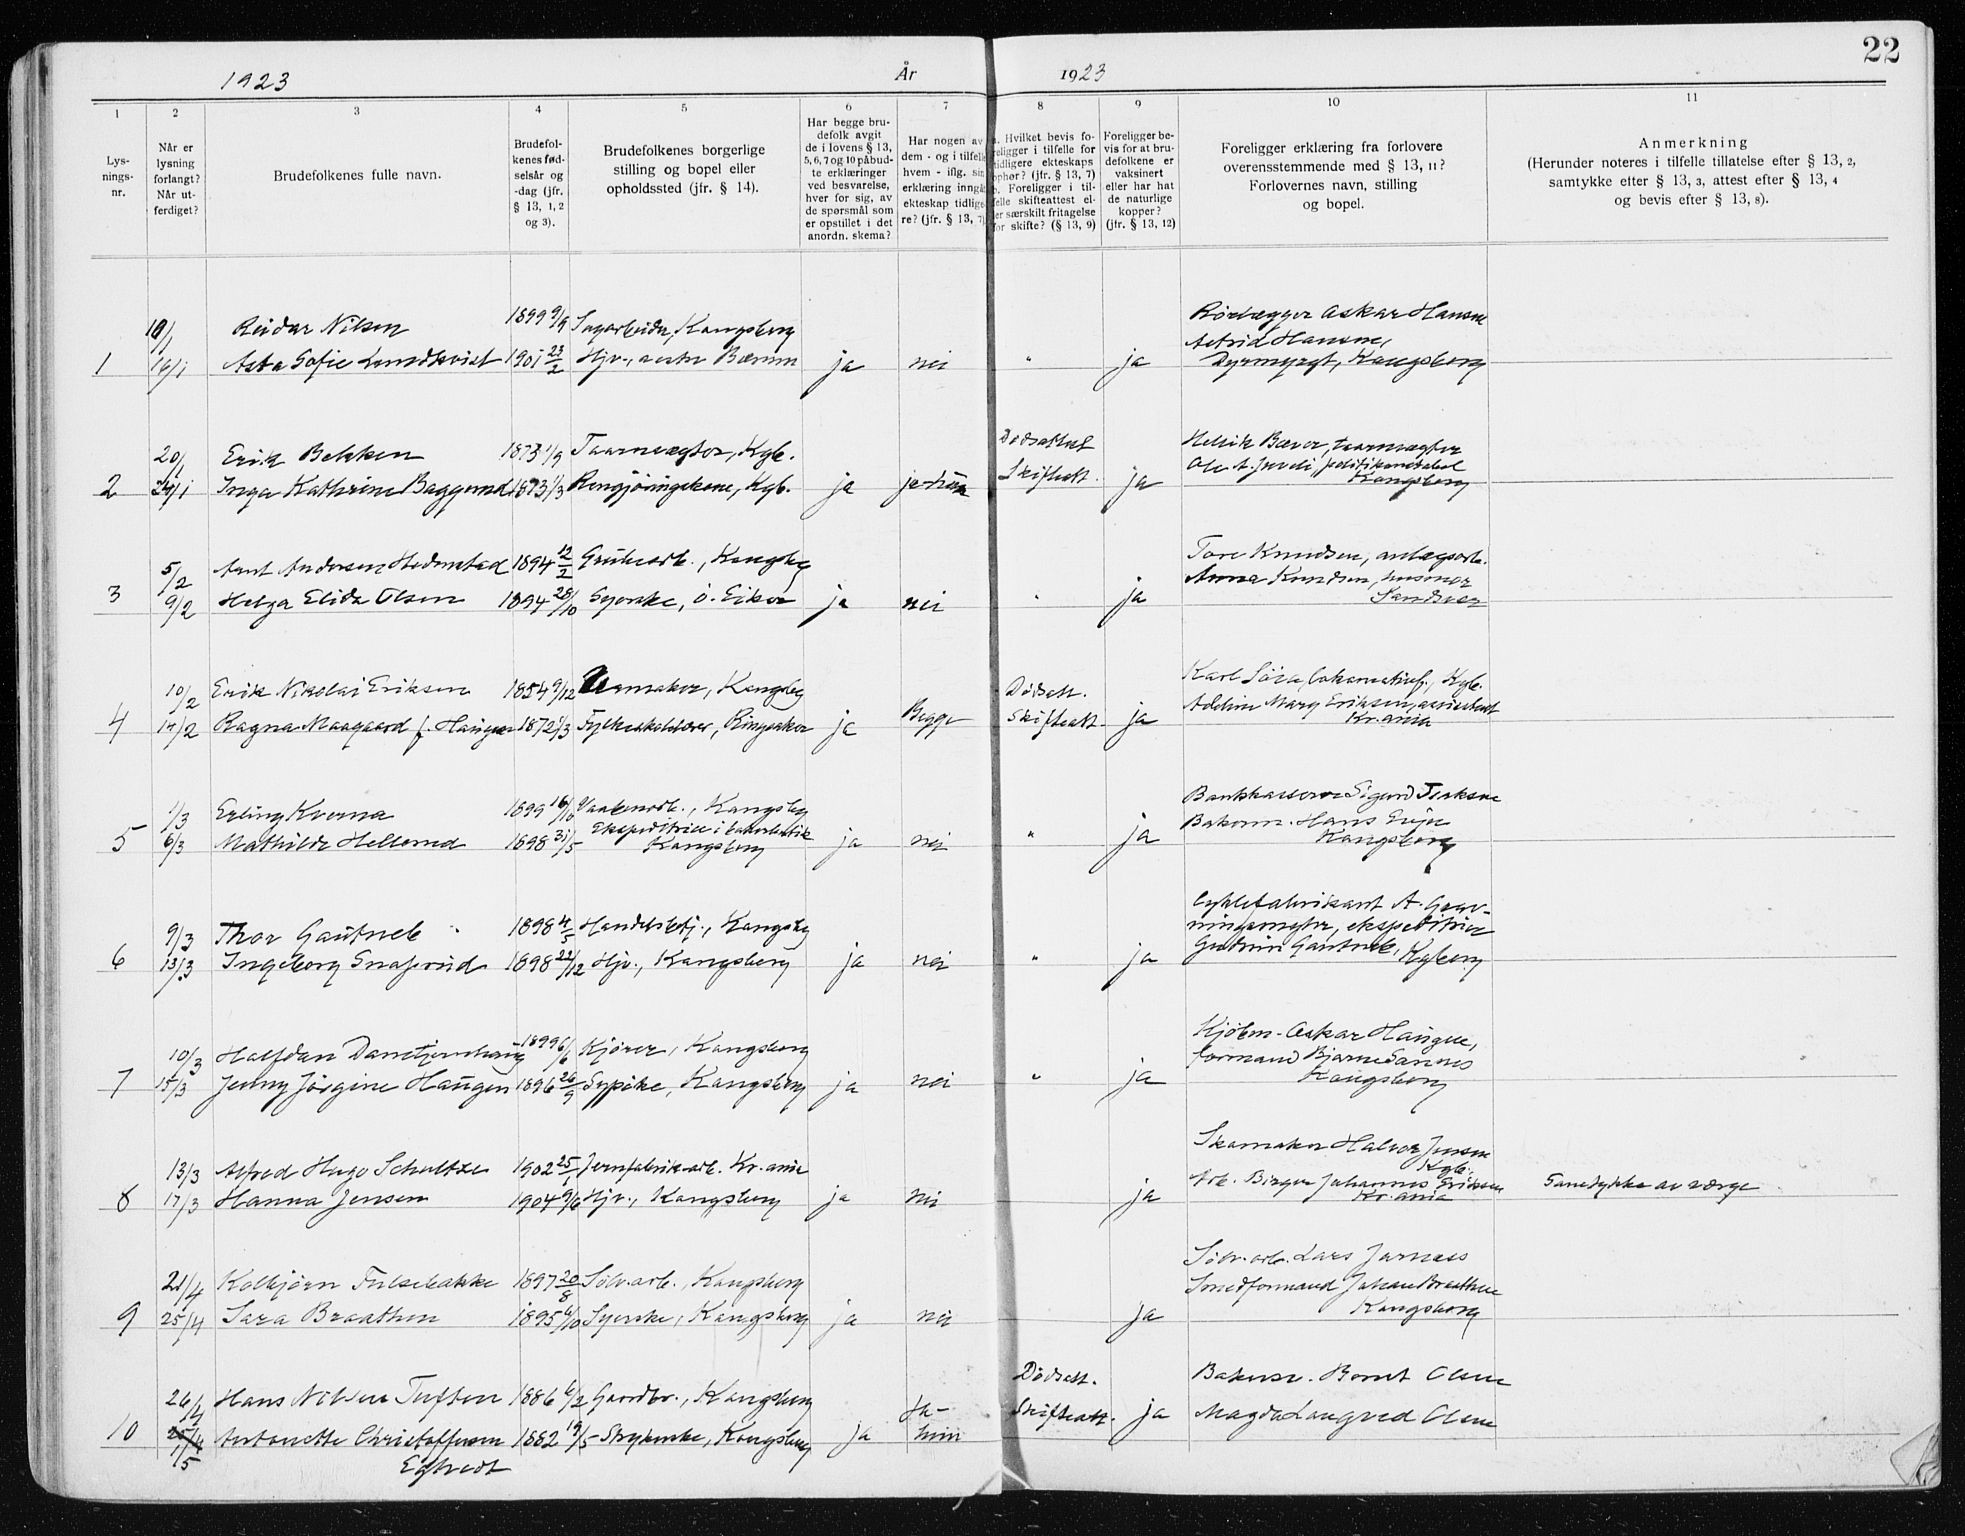 22
1923
År
1923
1
2
3
4
5
6
7
8
9
10
11
Lys-
nings-
nr.
Når er
lysning
forlangt?
Når ut-
ferdiget?
Brudefolkenes fulle navn.
Brudefol-
kenes fød-
selsår og
-dag (jfr.
§ 13, 1, 2
og 3).
Brudefolkenes borgerlige
stilling og bopel eller
opholdssted (jfr. § 14).
Har begge bru-
defolk avgit
de i lovens § 13,
5, 6, 7 og 10 påbud-
te erklæringer
ved besvarelse,
hver for sig, av
de spørsmål som
er opstillet i det
anordn. skema?
Har nogen av
dem - og i tilfelle
hvem - iflg. sin
erklæring inngåt
ekteskap tidlige-
re? (jfr. § 13, 7)
Hvilket bevis fo-
religger i tilfelle for
tidligere ekteskaps
ophør? (jfr. § 13, 7)
b. Foreligger i til-
felle skifteattest el-
ler særskilt fritagelse
for skifte? (§ 13, 9)
Foreligger be-
vis for at bru-
defolkene er
vaksinert
eller har hat
de naturlige
kopper?
(jfr. § 13, 12)
Foreligger erklæring fra forlovere
overensstemmende med § 13, 11?
Forlovernes navn, stilling
og bopel.
Anmerkning
(Herunder noteres i tilfelle tillatelse efter § 13, 2,
samtykke efter § 13, 3, attest efter § 13, 4
og bevis efter § 13, 8).
Rørlægger Askar Hansen
Reidar Nilsen 1899 9/9 Kongsberg
Astrid Hansen,
1 16/1 Asta Sofie Lundkvist 1901 23/2 Hjv., Bærum ja nei " ja
Kongsberg
20/1 Erik Bekken 1873 Taarnvægter, Kgb. Dødsattest taarnvægter
2 Inga Kathrine 1873 1/3 Kgb. ja Skifteatt. ja Ole
Kongsberg
5/2 Andersen Hedenstad 1894 12/2 Grubearb., Kongsbg Tore Knudsen, anlægsarb.
Anna Knudsen, husmor
3 9/2 Helga Elida Olsen 1894 28/10 Syerske, Ö. Eiker ja nei " ja Sandsvær
10/2 Erik Nikolai Eriksen 1854 9/12 Urmaker, Kongsbg Dødsatt. Karl Kgb.
4 14/2 Ragna Maagaard f. Haugen 1872 Ringsaker ja Begge Skifteatt. ja Adeline Mary Eriksen, assistent
Kr.ania
1/3 Erling Kverna 1899 16/10 Vaabenarb., Kongsbg Bankkasserer Sigurd Isaksen
Ekspeditrice i bakerbutik
5 6/3 Mathilde Hellerud 1898 31/5 Kongsberg ja nei " ja Hans
Kongsberg
9/3 Thor Gautneb 1898 4/5 Handelsbetj., Kongsbg Cyklefabrikant A. Grav-
ningsmyhr, ekspeditrice
6 13/3 Ingeborg Snaprud 1898 22/12 Hjv., Kongsberg ja nei " ja Gudrun Gautneb, Kgberg
10/3 Halfdan 1899 6/6 Kjører, Kongsberg Kjøbm. Oskar Haugen,
formand Bjarne Sannes
7 15/3 Jenny Jörgine Haugen 1896 26/9 Sypike, Kongsberg ja nei " ja Kongsberg
Skomaker Halvor Jensen
13/3 Alfred Hugo Schultze 1902 25/1 Jernfabrik-arb. Kr.ania Kgb.
Arb. Birger Johannes Eriksen
8 17/3 Hanna Jensen 1904 9/6 Hjv., Kongsberg ja nei ja Kr.ania Samtykke av værge
Sölv.arb. Lars
21/4 Kolbjörn Fulsebakke 1897 20/8 Sölv.arb., Kongsberg Smedformand Johan Braathen
9 25/4 Sara Braathen 1895 6/10 Syerske, Kongsberg ja nei ja Kongsberg
26/4 Hans Nilsen Tuften 1886 6/2 Gaardbr., Kongsberg Dødsatt. Bernt Olsen
10 25/4 Antonette Christoffersen 1882 19/5 Strykerske, Kongsberg ja Ja- hun Skifteatt. ja Magda Langrud Olsen
1/5 Egtvedt